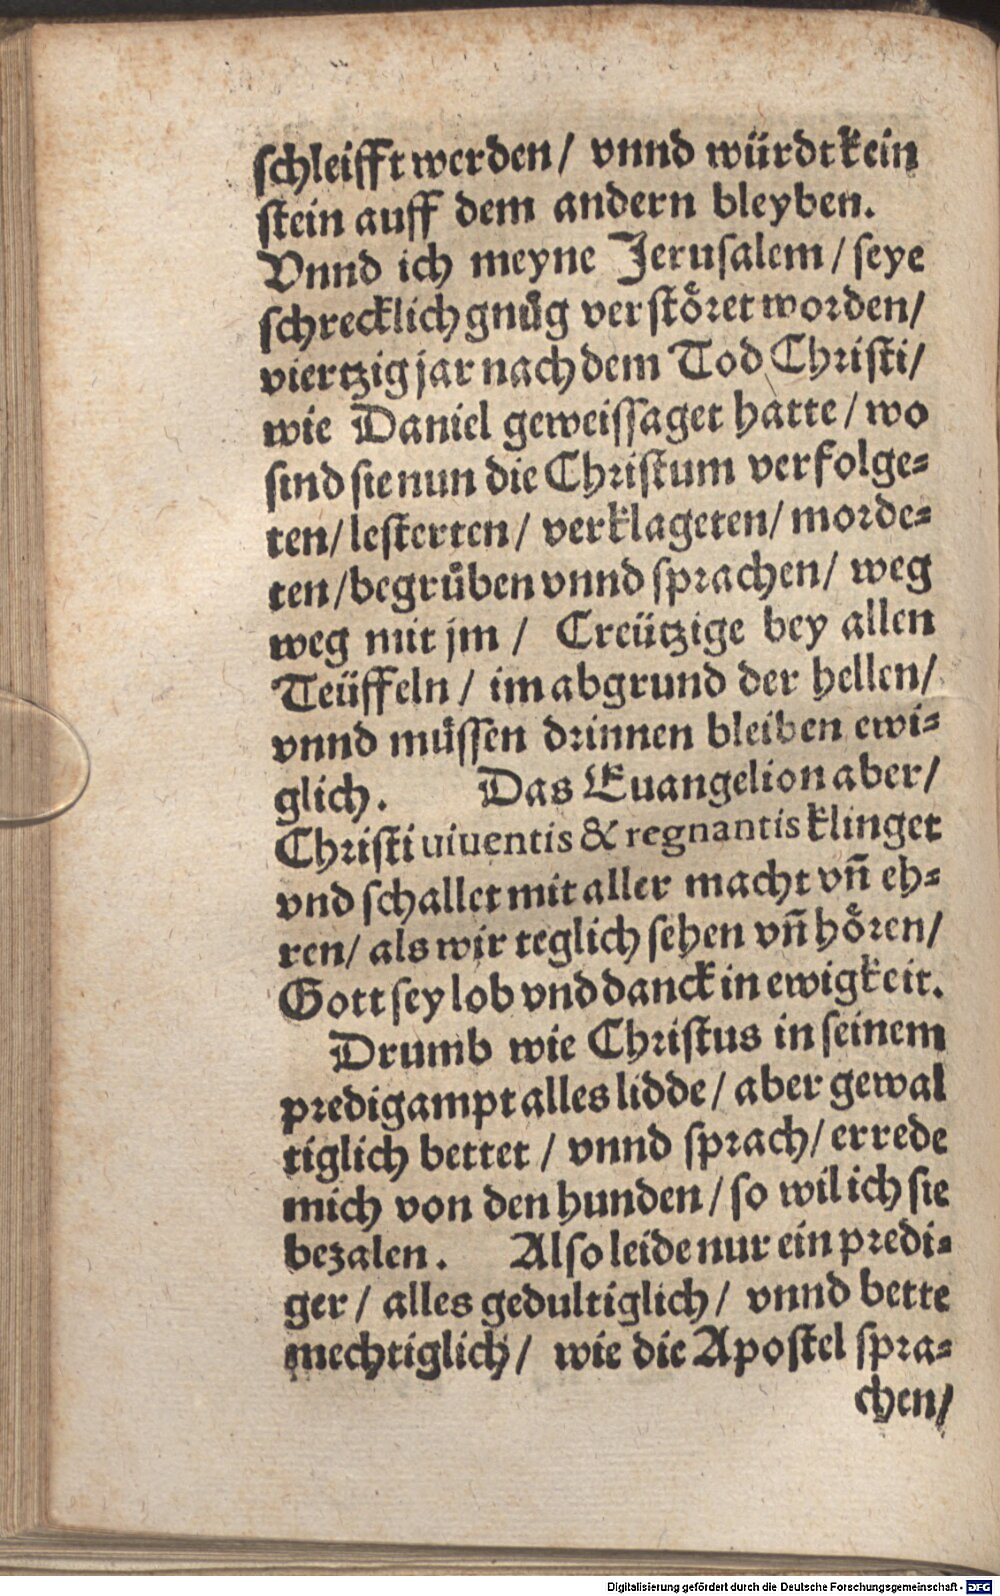 schleifft werden / vnnd würdt kein
stein auff dem andern bleyben.
Vnnd ich meyne Jerusalem / seye
schrecklich gnůg verstöret worden /
viertzig jar nach dem Tod Christi /
wie Daniel geweissaget hatte / wo
sind sie nun die Christum verfolge=
ten / lesterten / verklageten / morde=
ten / begrůben vnnd sprachen / weg
weg mit jm / Creützige bey allen
Teüffeln / im abgrund der hellen /
vnnd müssen drinnen bleiben ewi=
glich. Das Euangelion aber /
Christi uiuentis & regnantis klinget
vnd schallet mit aller macht vñ eh=
ren / als wir teglich sehen vñ hören /
Gott sey lob vnd danck in ewigkeit.
Drumb wie Christus in seinem
predigampt alles lidde / aber gewal
tiglich bettet / vnnd sprach / errede
mich von den hunden / so wil ich sie
bezalen. Also leide nur ein predi=
ger / alles gedultiglich / vnnd bette
mechtiglich / wie die Apostel spra=
chen /
Digitalisierung gefördert durch die Deutsche Forschungsgemeinschaft - DFG